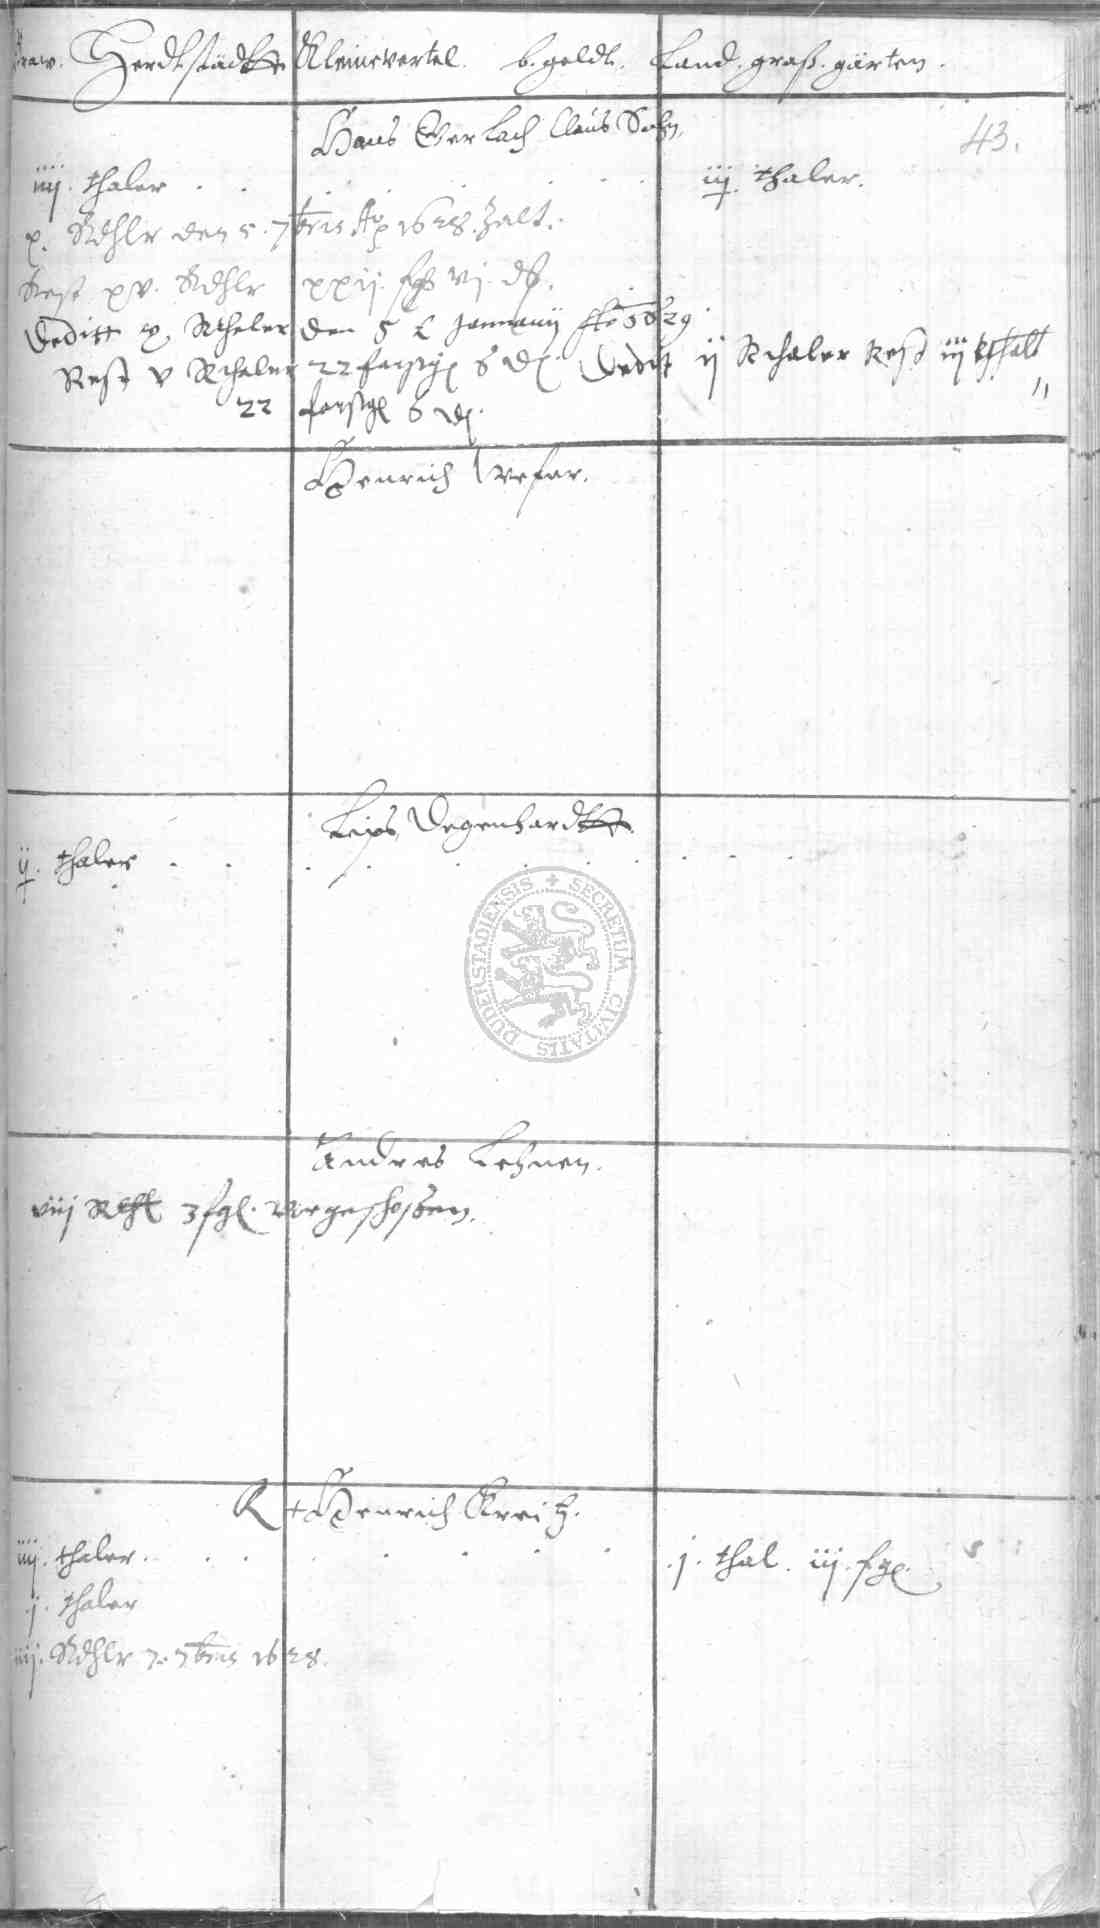 Herdtstädte Kleinevertel. b. geldt. Land. graß. gärten.
43.
Hans Gerlach Claus Sohn.
iiij. thaler . . . . . . . . iij. thaler.
x. Rthlr den 5. 7bris Ao 1628. Zalt.
Rest xv. Rthlr xxij. fgl vj. df.
Deditt x. Rthaler den 5 Januarij Ao 1629.
Rest v Rthaler 22 forstgl 6 d. Dedit ij Rthaler Rest iij Rthall
22 forstgl 6 d.
Henrich
Lips Degenhardt
ij. thaler . . . . . . . . . .
SECRETUM CIVITATIS DUDERSTADIENSIS
Andres Lehnen.
viij Rthl 3 fgl. vorgeschossen.
R + Henrich Kreitz.
iiij. thaler . . . . . . . . j. thal. iij. fgl.
j. thaler
iiij. Rthlr 7. 7bris 1628.